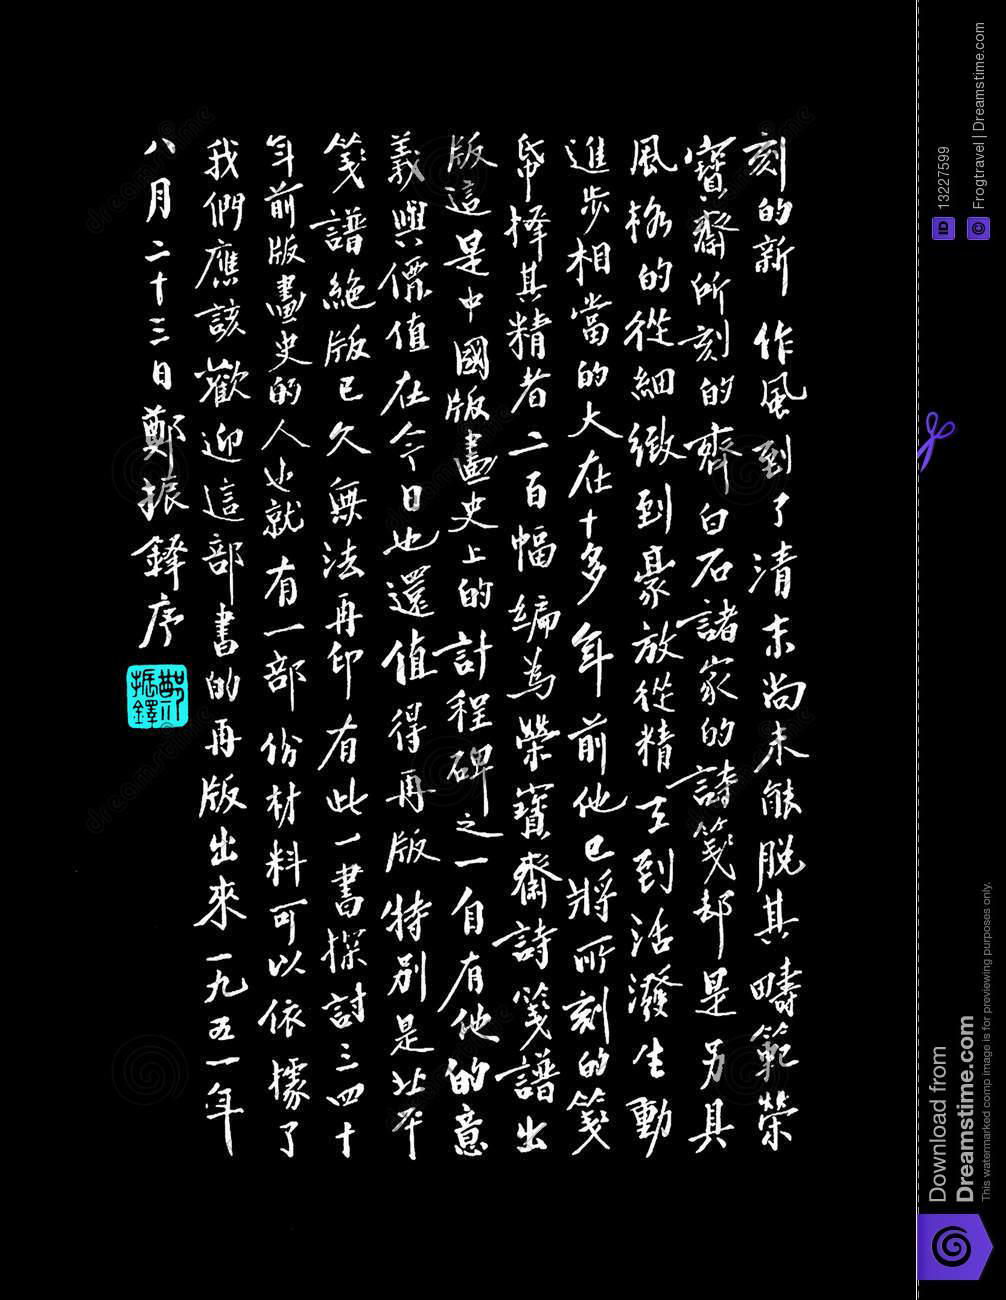 刻的新作風到了清末尚未能脫其疇範榮
寶齋所刻的齊白石諸家的詩箋却是另具
風格的從細緻到豪放從精工到活潑生動
進步相當的大在十多年前他已將所刻的箋
帋擇其精者二百幅編為榮寶齋詩箋譜出
版這是中國版畫史上的計程碑之一自有他的意
義與價值在今日也還值得再版特別是北平
箋譜絕版已久無法再印有此一書探討三四十
年前版畫史的人也就有一部份材料可以依據了
我們應該歡迎這部書的再版出來一九五一年
八月二十三日鄭振鐸序
鄭振鐸
13227599
Frogtravel | Dreamstime.com
Download from
Dreamstime.com
This watermarked comp image is for previewing purposes only.